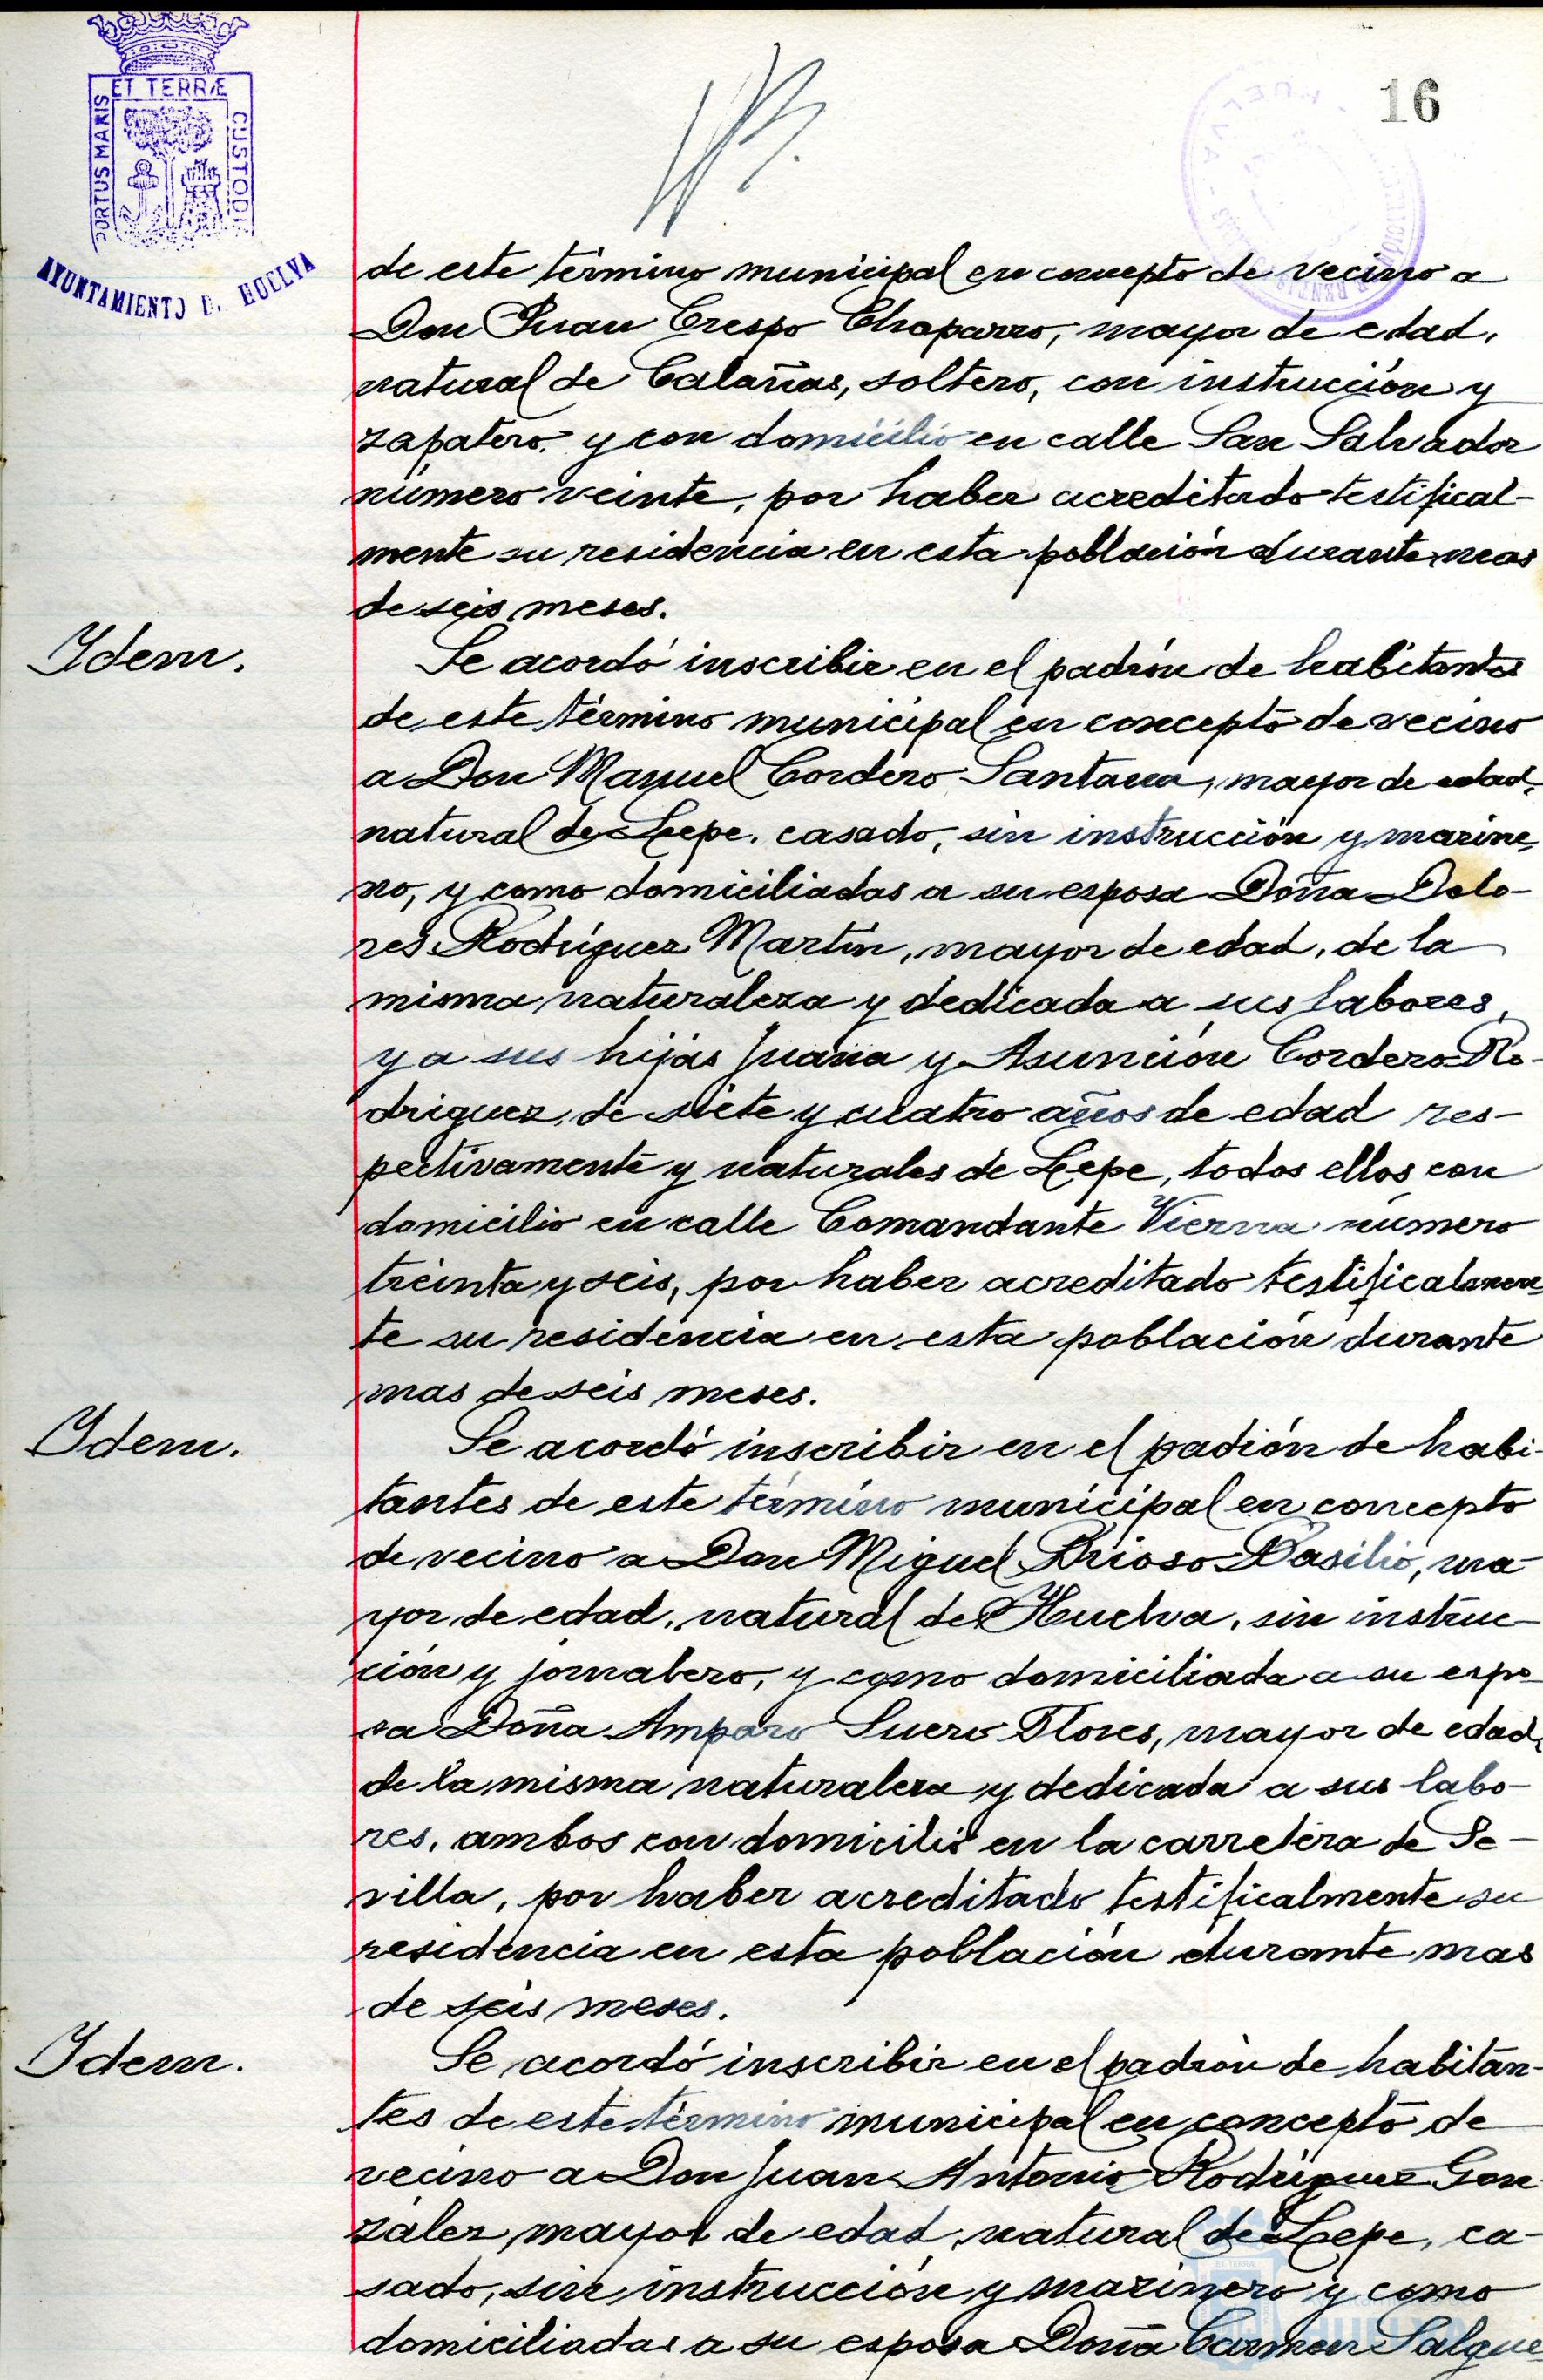 16
ET TERRÆ
PORTUS MARIS
CUSTODI
AYUNTAMIENTO D. HUELVA
de este término municipal en concepto de vecino a
Don Juan Crespo Chaparro, mayor de edad,
natural de Calañas, soltero, con instrucción y
zapatero y con domicilio en calle San Salvador
número veinte, por haber acreditado testifical-
mente su residencia en esta población durante mas
de seis meses.
Idem.
Se acordó inscribir en el padrón de habitantes
de este término municipal en concepto de vecino
a Don Manuel Cordero Santana, mayor de edad,
natural de Lepe, casado, sin instrucción y marine-
ro, y como domiciliadas a su esposa Doña Dolo-
res Rodríguez Martín, mayor de edad, de la
misma naturaleza y dedicada a sus labores,
y a sus hijas Juana y Asunción Cordero Ro-
driguez, de siete y cuatro años de edad res-
pectivamente y naturales de Lepe, todos ellos con
domicilio en calle Comandante Vierna número
treinta y seis, por haber acreditado testificalmen-
te su residencia en esta población durante
mas de seis meses.
Idem.
Se acordó inscribir en el padrón de habi-
tantes de este término municipal en concepto
de vecino a Don Miguel Brioso Basilio, ma-
yor de edad, natural de Huelva, sin instruc-
ción y jornalero, y como domiciliada a su espo-
sa Doña Amparo Suero Flores, mayor de edad,
de la misma naturaleza y dedicada a sus labo-
res, ambos con domicilio en la carretera de Se-
villa, por haber acreditado testificalmente su
residencia en esta población durante mas
de seis meses.
Idem.
Se acordó inscribir en el padrón de habitan-
tes de este término municipal en concepto de
vecino a Don Juan Antonio Rodríguez Gon-
zález, mayor de edad, natural de Lepe, ca-
sado, sin instrucción y marinero y como
domiciliadas a su esposa Doña Carmen Salgue-